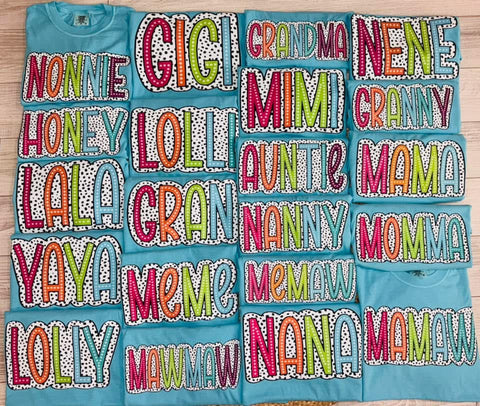 NONNIE
HONEY
LALA
YAYA
LOLLY
GIGI
LOLLI
GRAN
MeMe
MAWMAW
GRANDMA
MIMI
AUNTIe
NANNY
MeMAW
NANA
NENE
GRANNY
MAMA
MOMMA
MAMAW